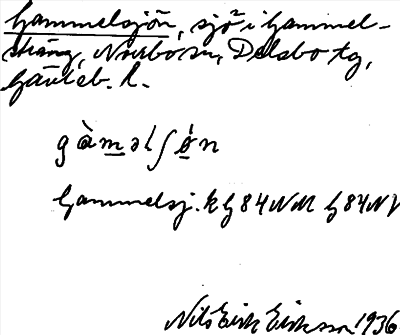 Gammelsjön, sjö i Gammel-
sträng, Norrbo sn, Delsbo tg,
Gävleb. l.
gàməlʃøn
Gammelsj. k h 84 NM h 84 NV
Nils Erik Eriksson 1936